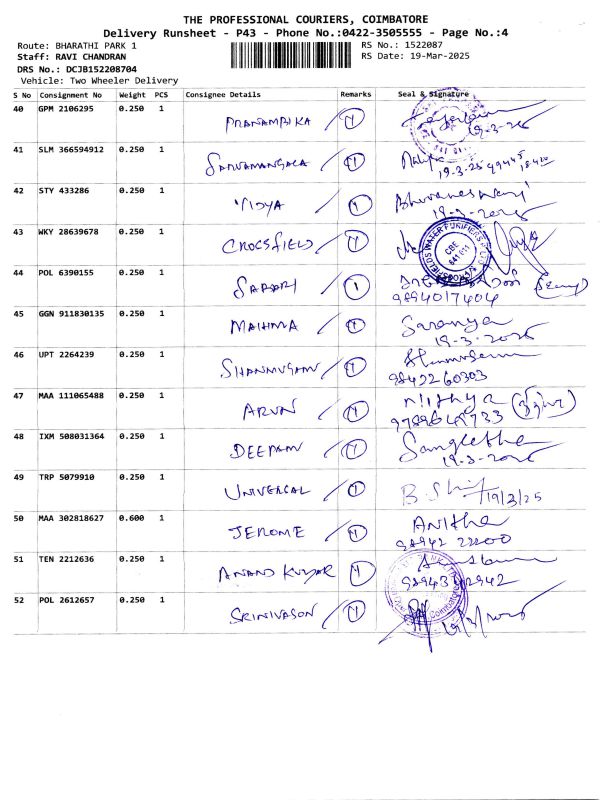 THE PROFESSIONAL COURIERS, COIMBATORE
Delivery Runsheet - P43 - Phone No.:0422-3505555 - Page No.:4
Route: BHARATHI PARK 1
RS No.: 1522087
Staff: RAVI CHANDRAN
RS Date: 19-Mar-2025
DRS No.: DCJB152208704
Vehicle: Two Wheeler Delivery
S No Consignment No Weight PCS Consignee Details Remarks Seal & Signature
40 GPM 2106295 0.250 1 PRANAMBIKA 1
41 SLM 366594912 0.250 1 SARVAMANGALA 1
19-3-25
42 STY 433286 0.250 1 VIDYA 1 Bhuvaneswari
19-3-2025
43 WKY 28639678 0.250 1 CROSSFIELD 1
44 POL 6390155 0.250 1 SAFARI 1
9894017404
45 GGN 911830135 0.250 1 MAHIMA 1 Saranya
19-3-2025
46 UPT 2264239 0.250 1 SHANMUGAM 1
9842260303
47 MAA 111065488 0.250 1 ARUN 1 Nithya
48 IXM 508031364 0.250 1 DEEPAM 1 Sangeetha
19-3-2025
49 TRP 5079910 0.250 1 UNIVERSAL 1 19/3/25
50 MAA 302818627 0.600 1 JEROME 1 ANITHA
98942 22200
51 TEN 2212636 0.250 1 ANAND KUMAR 1
52 POL 2612657 0.250 1 SRINIVASON 1
19/3/2025